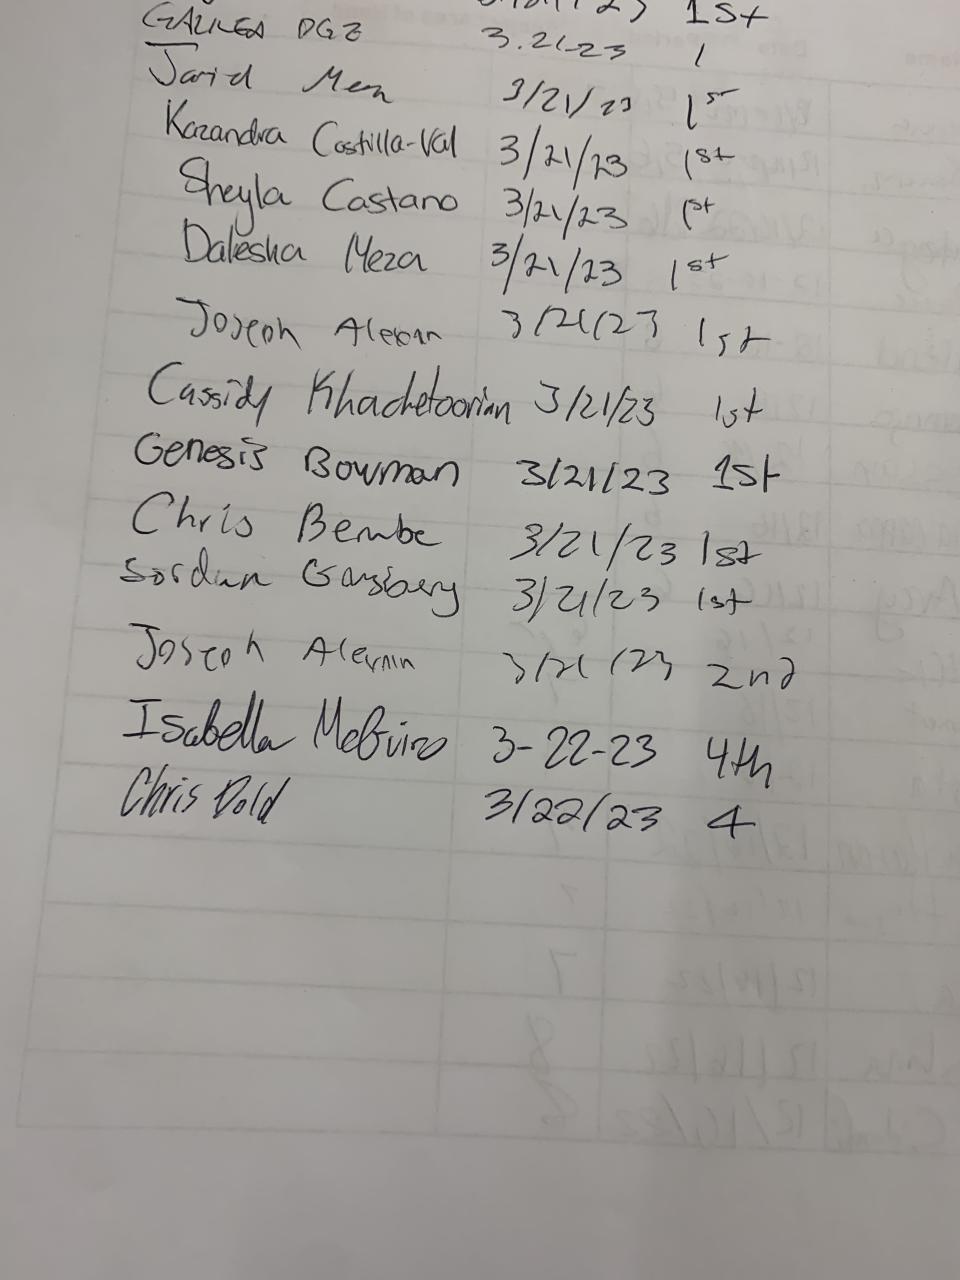 1st
GALILEA DGZ 3.21-23 1
Jarid Mena 3/21/23 1st
Kazandra Castilla-Val 3/21/23 1st
Sheyla Castano 3/21/23 1st
Dalesha Meza 3/21/23 1st
Joseph 3/21/23 1st
Cassidy Khachetoorian 3/21/23 1st
Genesis Bowman 3/21/23 1st
Chris Bembe 3/21/23 1st
Jordan 3/21/23 1st
Joseph 3/21/23 2nd
Isabella McGuire 3-22-23 4th
Chris Dold 3/22/23 4